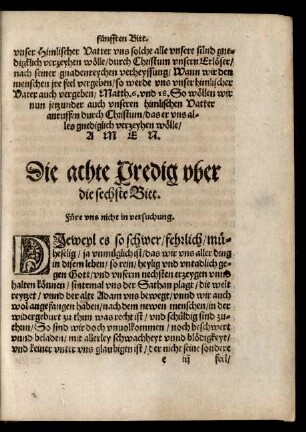 fünfften Bitt.
vnser Himlischer Vatter vns solche alle vnsere sünd gne-
digklich verzeyhen wölle/ durch Christum vnsern Erlöser/
nach seiner gnadenreychen verheyssung/ Wann wir den
menschen jre feel vergeben/ so werde vns vnser himlischer
Vater auch vergeben/ Matth. 6. vnd 18. So wöllen wir
nun jetzunder auch vnseren himlischen Vatter
anruffen durch Christum/ das er vns al-
les gnediglich verzeyhen wölle/
A M E N.
Die achte Predig vber
die sechste Bitt.
Füre vns nicht in versuchung.
DIeweyl es so schwer/ fehrlich/ mü-
heselig/ ja vnmüglich ist/ das wir vns aller ding
in disem leben/ so rein/ heylig vnd vntadlich ge-
gen Gott/ vnd vnserm nechsten erzeygen vnnd
halten können/ sintemal vns der Sathan plagt/ die welt
reytzet/ vnnd der alte Adam vns bewegt/ vnnd wir auch
wol angefangen haben/ nach dem newen menschen/ in der
widergeburt zu thun was recht ist/ vnd schuldig sind zu-
thun/ So sind wir doch vnuolkommen/ noch beschwert
vnnd beladen/ mit allerley schwachheyt vnnd blödigkeyt/
vnd keiner vnter vns glaubigen ist/ der nicht seine sondere
e iij feel/